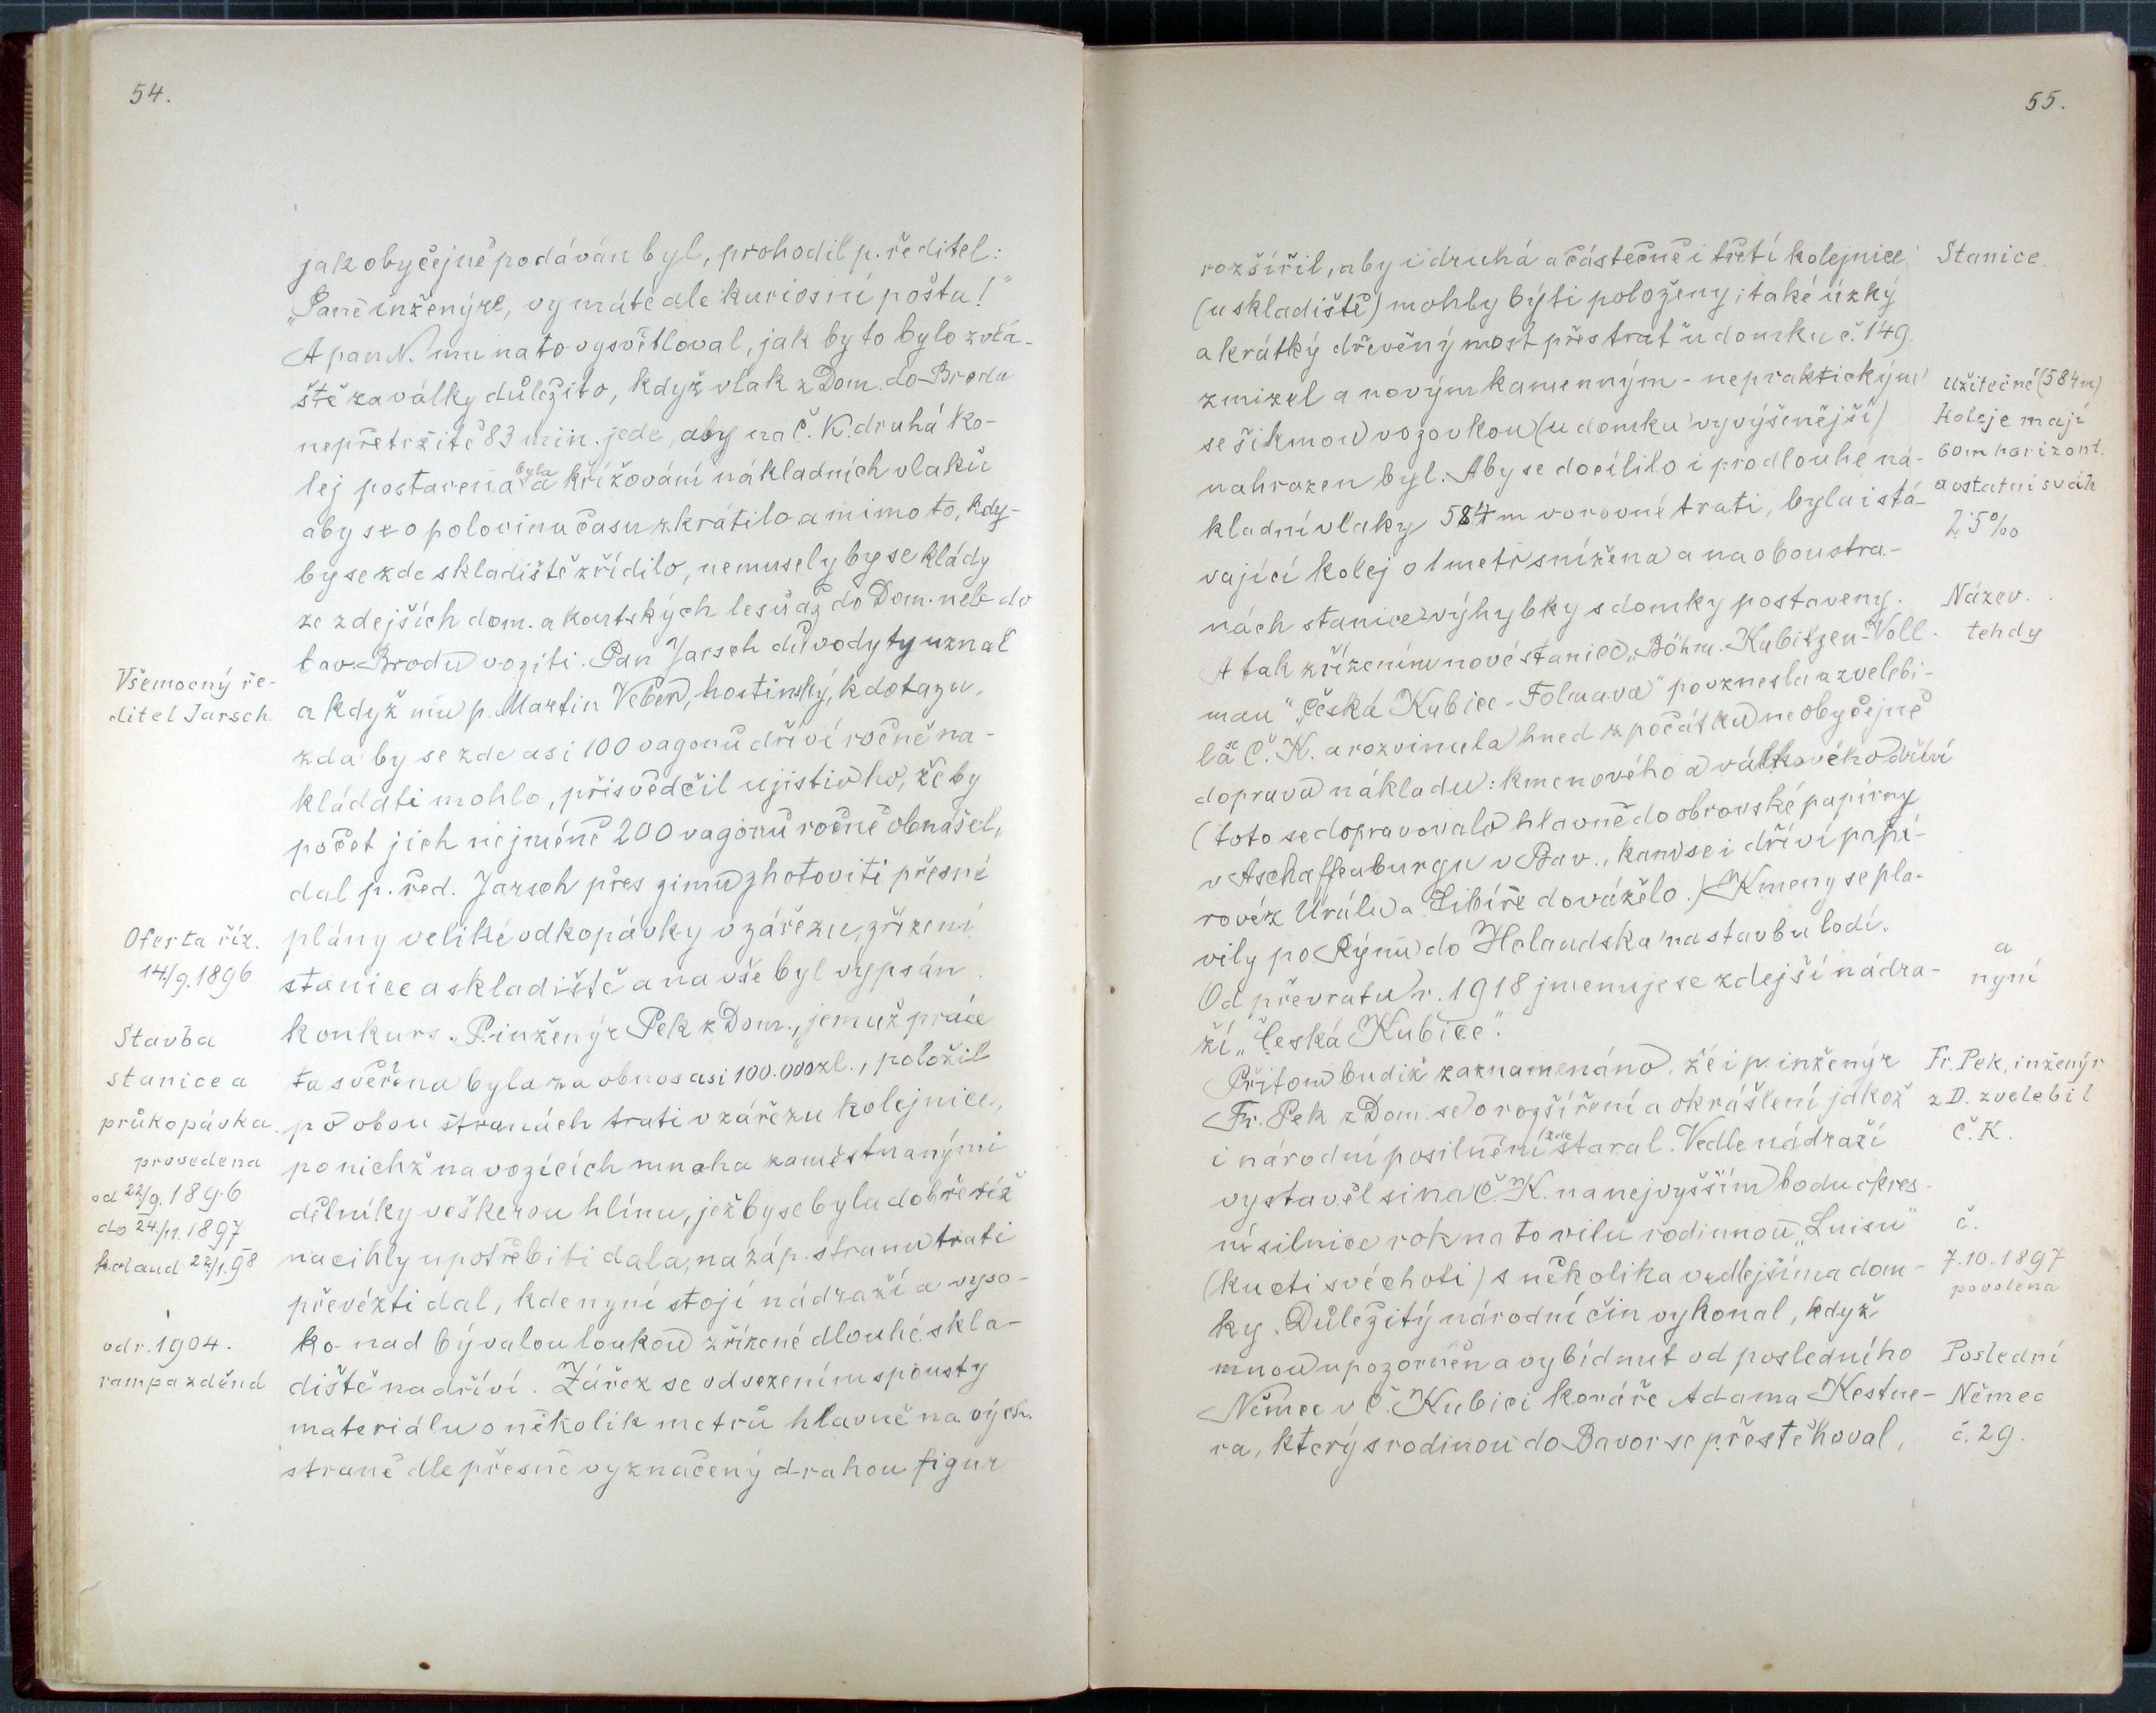 54.
jak obyčejně podáván byl, prohodil p. ředitel:
„Pane inženýre, vy máte ale kuriosní poštu!"
A pan N. mu na to vysvětloval, jak by to bylo zvlá-
ště za války důležito, když vlak z Dom. do Brodu
nepřetržitě 83 min. jede, aby na Č. K. druhá ko-
lej postavena byla a křižování nákladních vlaků
aby se o polovinu času zkrátilo a mimo to, kdy-
by se zde skladiště zřídilo, nemusely by se klády
ze zdejších dom. a koutských lesů až do Dom. neb do
bav. Brodu voziti. Pan Jarsch důvody ty uznal
Všemocný ře-
ditel Jarsch.
a když mu p. Martin Veber, hostinský, k dotazu,
zda by se zde asi 100 vagonů dříví ročně na-
kládati mohlo, přisvědčil ujistiv ho, že by
počet jich nejméně 200 vagonů ročně obnášel,
dal p. řed. Jarsch přes zimu zhotoviti přesné
Oferta říz.
14./9. 1896
plány veliké odkopávky v zářezu, zřízení
stanice a skladiště a na vše byl vypsán
konkurs. P. inženýr Pek z Dom., jemuž práce
Stavba
stanice a
průkopávka
provedena
od 22/9. 1896
do 24./11. 1897
kolaud 22/1. 98
ta svěřena byla za obnos asi 100.000 zl., položil
po obou stranách trati v zářezu kolejnice,
po nichž na vozících mnoha zaměstnanými
dělníky veškerou hlínu, jež by se byla dobře též
na cihly upotřebiti dala, na záp. stranu trati
převézti dal, kde nyní stojí nádraží a vyso-
od r. 1904.
rampa zděná
ko nad bývalou loukou zřízené dlouhé skla-
diště na dříví. Zářez se odvezením spousty
materiálu o několik metrů hlavně na vých.
straně dle přesně vyznačený drahou figur
55.
rozšířil, aby i druhá a částečně i třetí kolejnice
Stanice.
(u skladiště) mohly býti položeny; také úzký
a krátký dřevěný most přes trať u domku č. 149
zmizel a novým kamenným - nepraktickým
se šikmou vozovkou (u domku vyvýšenější)
nahrazen byl. Aby se docílilo i pro dlouhé ná-
Užitečné (584 m)
Koleje mají
60 m horizont.
a ostatní svah
2·5 ‰
kladní vlaky 584 m vorovné trati, byla i stá-
vající kolej o 1 metr snížena a na obou stra-
nách stanice výhybky s domky postaveny.
Název.
tehdy
A tak zřízením nové stanice „Böhm. Kubitzen-Voll-
mau" „Česká Kubice-Folmava" povznesla a zvelebi-
la se Č. K. a rozvinula hned z počátku neobyčejně
doprava nákladu: kmenového a válkového dříví
(toto se dopravovalo hlavně do obrovské papírny
v Aschaffenburgu v Bav., kam se i dříví papí-
rové z Urálu a Sibiře dováželo.) Kmeny se pla-
vily po Rýnu do Holandska na stavbu lodí.
a
nyní
Od převratu r. 1918 jmenuje se zdejší nádra-
ží „Česká Kubice".
Přitom budiž zaznamenáno, že i p. inženýr
Fr. Pek, inženýr
z D. zvelebil
Č. K.
Fr. Pek z Dom. se o rozšíření a okrášlení jakož
i národní posilnění zde staral. Vedle nádraží
vystavěl si na Č. K. na nejvyšším bodu okres-
ní silnice rok na to vilu rodinnou „Luisu"
č.
7.10.1897
povolena
(ku cti své choti) s několika vedlejšíma dom-
ky. Důležitý národní čin vykonal, když
mnou upozorněn a vybídnut od posledního
Poslední
Němec
č. 29.
Němce v Č. Kubici kováře Adama Kestne-
ra, který s rodinou do Bavor se přestěhoval,